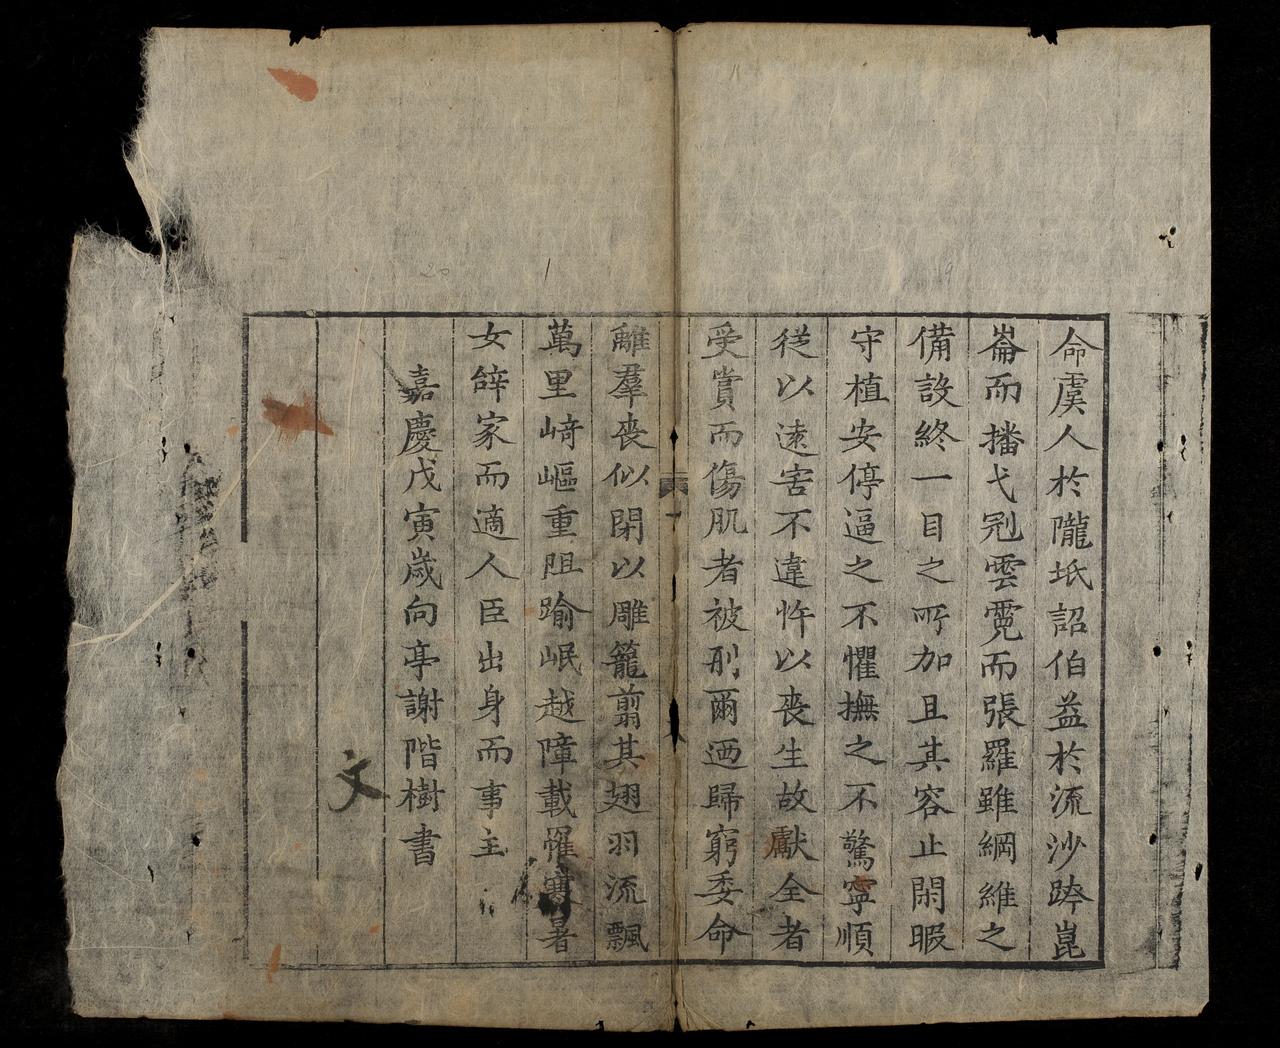 命虞人於隴坻詔伯益於流沙跨崑
崙而播弋冠雲霓而張羅雖綱維之
備設終一目之所加且其容止閑暇
守植安停逼之不懼撫之不驚寧順
從以遠害不違忤以喪生故獻全者
受賞而傷肌者被刑爾迺歸窮委命
離羣喪侶閉以雕籠翦其翅羽流飄
萬里崎嶇重阻踰岷越障載罹寒暑
女辭家而適人臣出身而事主
嘉慶戊寅歲向亭謝階樹書
文